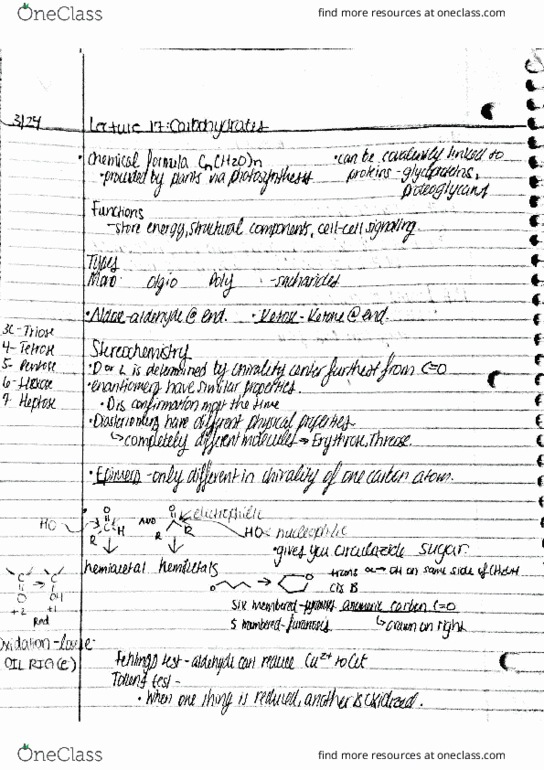 OneClass
find more resources at oneclass.com
3/24
Lecture 17: Carbohydrates
• chemical formula Cn(H2O)n
• provided by plants via photosynthesis
• can be covalently linked to
proteins - glycoproteins,
proteoglycans
Functions
- store energy, structural components, cell-cell signaling
Types
Mono Olgio Poly -saccharides
• Aldose - aldehyde @ end. • Ketose - Ketone @ end
3C - Triose
4 - Tetrose
5 - Pentose
6 - Hexose
7 - Heptose
Stereochemistry
• D or L is determined by chirality center furthest from C=O
• enantiomers have similar properties.
• D is confirmation most the time
have different physical properties
↳ completely different molecules → Erythrose, Threose
• Epimers - only different in chirality of one carbon atom.
HO C H R AND R R electrophilic
HO - nucleophilic
• gives you sugar
hemiacetal hemiketals
trans α → OH on same side of
cis B
six membered - anomeric carbon C=O
5 membered - furanosis ↳ drawn on right
C O +2 → C OH +1
Oxidation - loose
OIL RIG (e)
Fehlings test - aldehyde can reduce Cu2+ to Cu+
Tollens test -
• When one thing is reduced, another is oxidized.
OneClass
find more resources at oneclass.com